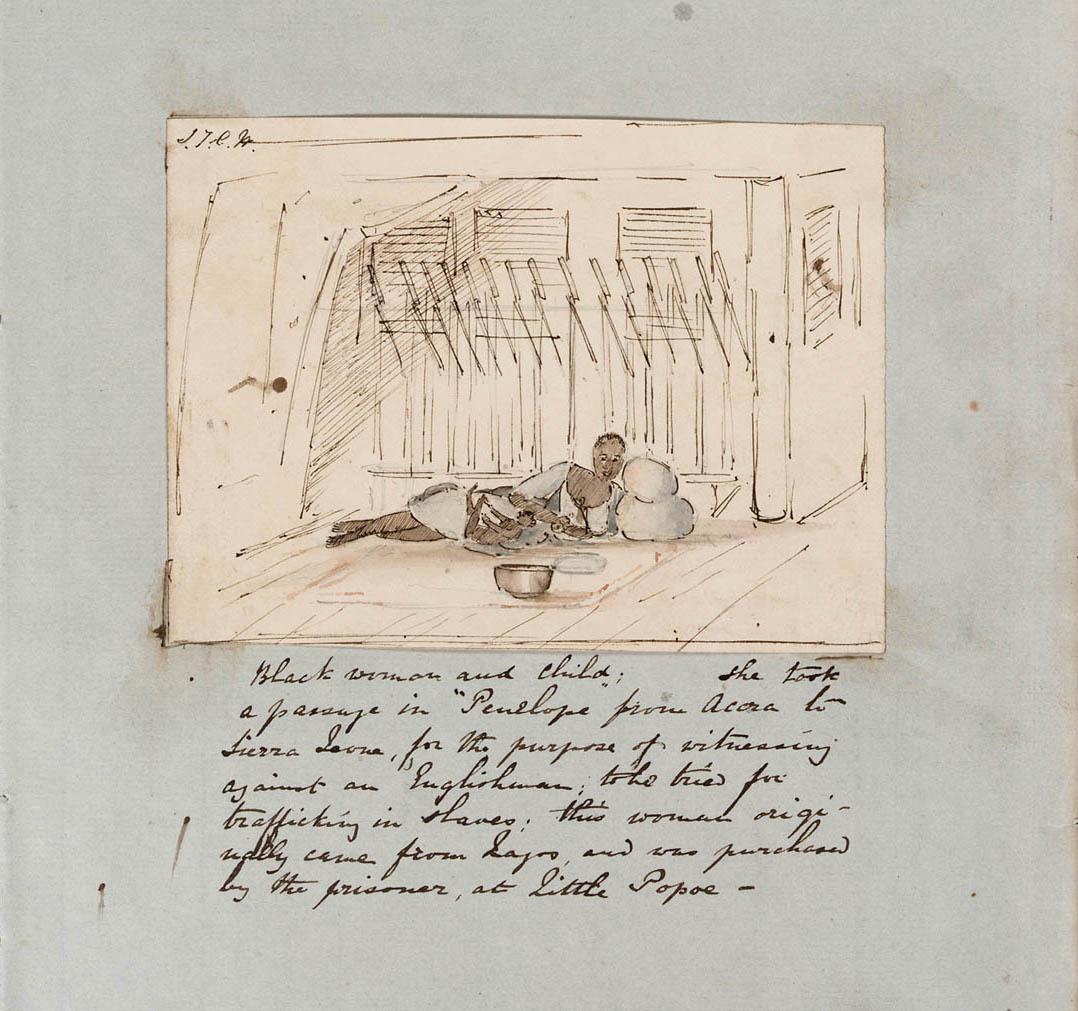 J.T.C.W.
Black woman and child; she took
a passage in "Penelope" from Accra to
Sierra Leone, for the purpose of witnessing
against an Englishman, to be tried for
trafficking in slaves; this woman origi-
nally came from Lagos, and was purchased
by the prisoner, at Little Popoe -